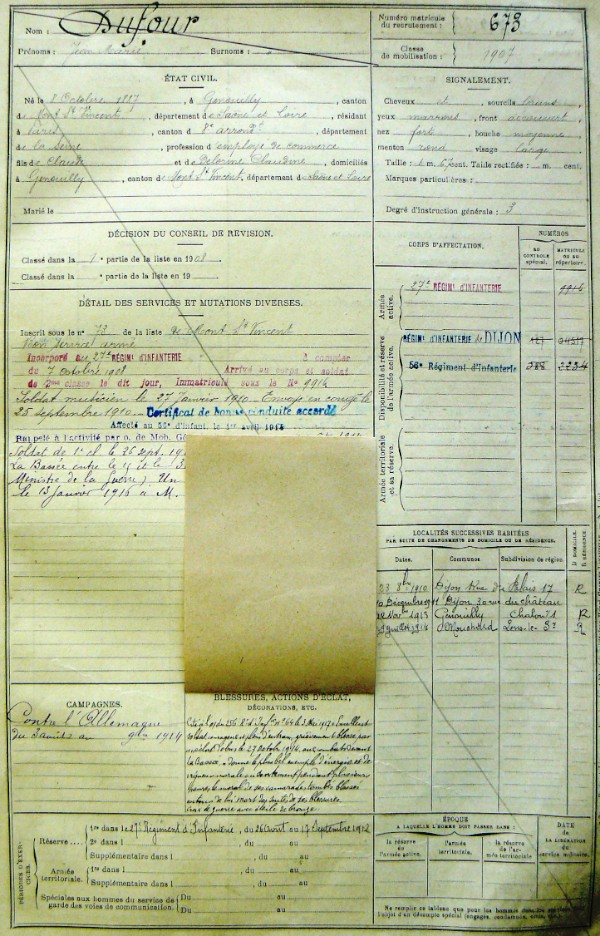 Nom : Dufour
Prénoms : Jean Marie Surnoms :
Numéro matricule du recrutement : 673
Classe de mobilisation : 1907
ÉTAT CIVIL.
Né le 8 Octobre 1887, à Genouilly, canton
de Mont St Vincent, département de Saône et Loire, résidant
à Paris, canton d 8e arrondt, département
de la Seine, profession d'employé de commerce
fils de Claude et de Delorme Claudine, domiciliés
à Genouilly, canton de Mont St Vincent, département de Saône et Loire
Marié le
SIGNALEMENT.
Cheveux et sourcils bruns
yeux marrons, front découvert
nez fort, bouche moyenne
menton rond visage large
Taille : 1 m. 67 cent. Taille rectifiée : m. cent.
Marques particulières :
Degré d'instruction générale : 3
DÉCISION DU CONSEIL DE RÉVISION.
Classé dans la 1e partie de la liste en 1908
Classé dans la partie de la liste en 19
DÉTAIL DES SERVICES ET MUTATIONS DIVERSES.
Inscrit sous le no 73 de la liste de Mont St Vincent
Bon service armé
Incorporé au 27e RÉGIMENT D'INFANTERIE à compter
du 7 octobre 1908 Arrivé au corps et soldat
de 2me classe le dit jour, Immatriculé sous le No 9914
Soldat musicien le 27 Janvier 1910. Envoyé en congé le
25 septembre 1910. Certificat de bonne conduite accordé
Affecté au 56e d'infant. le 1er avril 1914
Rappelé à l'activité par o. de Mob. Gé
Soldat de 1e cl. le 26 sept. 19
La Bassée entre le 15 et le
Ministre de la Guerre) Un
le 13 Janvier 1916 à M.
CORPS D'AFFECTATION.
NUMÉROS
AU CONTRÔLE spécial.
MATRICULE OU AU répertoire.
Armée active.
27e RÉGIMENT D'INFANTERIE 9914
Disponibilité et réserve de l'armée active.
RÉGIMENT D'INFANTERIE de DIJON
56e Régiment d'Infanterie
Armée territoriale et sa réserve.
LOCALITÉS SUCCESSIVES HABITÉES
PAR SUITE DE CHANGEMENTS DE DOMICILE OU DE RÉSIDENCE.
Dates. Communes Subdivision de région. D. DOMICILE R. RÉSIDENCE
1910 Dijon 17 R
10 Décembre 1911 Dijon 30 rue du château
Nov. 1913 Genouilly Chalon R
1914 Mouchard Lons-le-Sr R
CAMPAGNES.
Contre l'Allemagne
du 3 août au 9bre 1914
BLESSURES, ACTIONS D'ÉCLAT,
DÉCORATIONS, ETC.
Cité à l'o. du 256e Rt d'Infie No 44 le 3 Mai 1917 : Excellent
soldat, courageux et plein d'entrain, grièvement blessé par
un éclat d'obus le 27 octobre 1914, aux combats devant
la Bassée. a donné le plus bel exemple d'énergie et de
vigueur morale en
heures, le moral de ses camarades tombés blessés
autour de lui. mort des suites de ses blessures.
Croix de guerre avec étoile de bronze.
PÉRIODES D'EXERCICES.
Réserve
1re dans le 27e Régiment d'Infanterie, du 26 Août au 17 Septembre 1912
2e dans l , du au
Supplémentaire dans l , du au
Armée territoriale.
1re dans l , du au
Supplémentaire dans l , du au
Spéciales aux hommes du service de garde des voies de communication.
Du au
Du au
ÉPOQUE
A LAQUELLE L'HOMME DOIT PASSER DANS :
la réserve de l'armée active.
l'armée territoriale.
la réserve de l'armée territoriale
DATE
DE LA LIBÉRATION du service militaire.
Ne remplir ce tableau que pour les hommes
l'objet d'un décompte spécial (engagés,